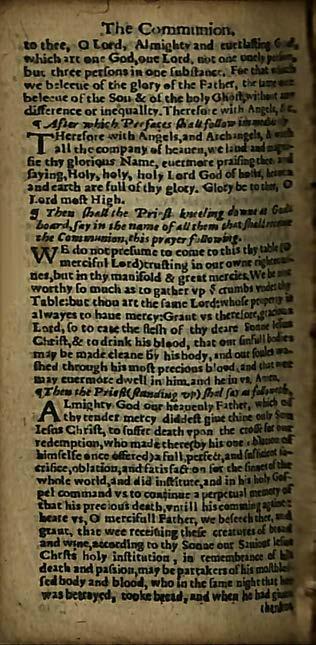 The Communion.
to thee, O Lord, Almighty and euerlasting
which art one God, one Lord, not one onely
but three persons in one substance. For that which
we beleeue of the glory of the Father, the same wee
beleeue of the Son & of the holy Ghost, without any
difference or inequality. Therefore with Angels, &c.
¶ After which Prefaces shall follow immediatly
THerefore with Angels, and Archangels, & with
all the company of heauen, we laud and magni-
fie thy glorious Name, euermore praising thee, and
saying, Holy, holy, holy Lord God of hosts, heauen
and earth are full of thy glory. Glory be to thee, O
Lord most High.
¶ Then shall the Priest kneeling downe at Gods
board, say in the name of all them that shall receiue
the Communion, this prayer following.
WE do not presume to come to this thy table (O
mercifull Lord) trusting in our owne righteous-
nes, but in thy manifold & great mercies. We be not
worthy so much as to gather vp ẏ crumbs vnder thy
Table: but thou art the same Lord: whose property is
alwayes to haue mercy: Grant vs therefore, gracious
Lord, so to eate the flesh of thy deare Sonne Iesus
Christ, & to drinke his blood, that our sinfull bodies
may be made cleane by his body, and our soules wa-
shed through his most precious blood, and that wee
may euermore dwell in him, and he in vs. Amen.
¶ Then the Priest (standing vp) shal say as followeth.
ALmighty God our heauenly Father, which of
thy tender mercy diddest giue thine only Sonne
Iesus Christ, to suffer death vpon the crosse for our
redemption, who made thereby his one oblation of
himselfe once offered) a full, perfect, and sufficient sa-
crifice, oblation, and satisfaction for the sinnes of the
whole world, and did institute, and in his holy Gos-
pel command vs to continue a perpetual memory of
that his precious death, vntill his comming againe:
heare vs, O mercifull Father, we beseech thee, and
grant, that wee receiuing these creatures of bread
and wine, according to thy Sonne our Sauiour Iesus
Christs holy institution, in remembrance of his
death and passion, may be partakers of his most bles-
sed body and blood, who in the same night that hee
was betrayed, tooke bread, and when he had giuen
thankes